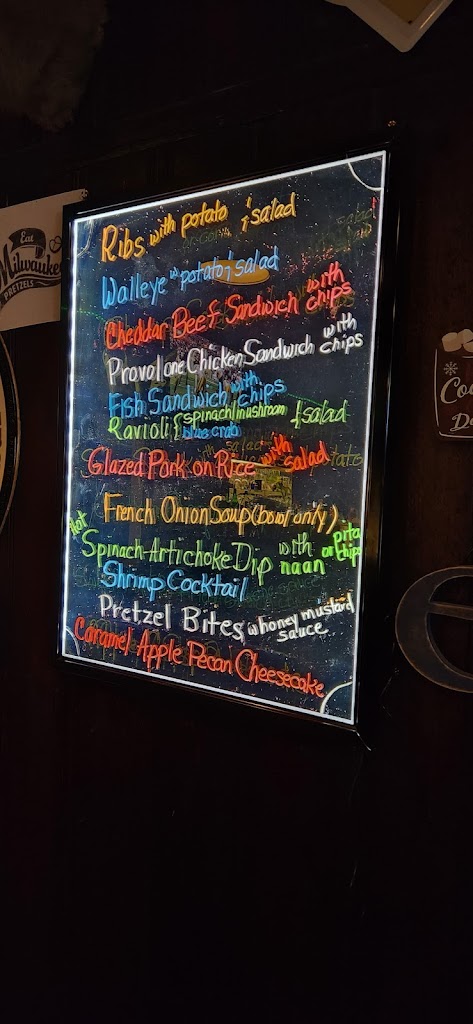 Eat
Milwaukee
PRETZELS
Ribs with potato & salad
Walleye w potato & salad
Cheddar Beef Sandwich with chips
Provolone Chicken Sandwich with chips
Fish Sandwich with chips
Ravioli { spinach/mushroom & salad
blue crab
Glazed Pork on Rice with salad
French Onion Soup (bowl only)
Hot Spinach-Artichoke Dip with naan or pita chips
Shrimp Cocktail
Pretzel Bites w honey mustard sauce
Caramel Apple Pecan Cheesecake